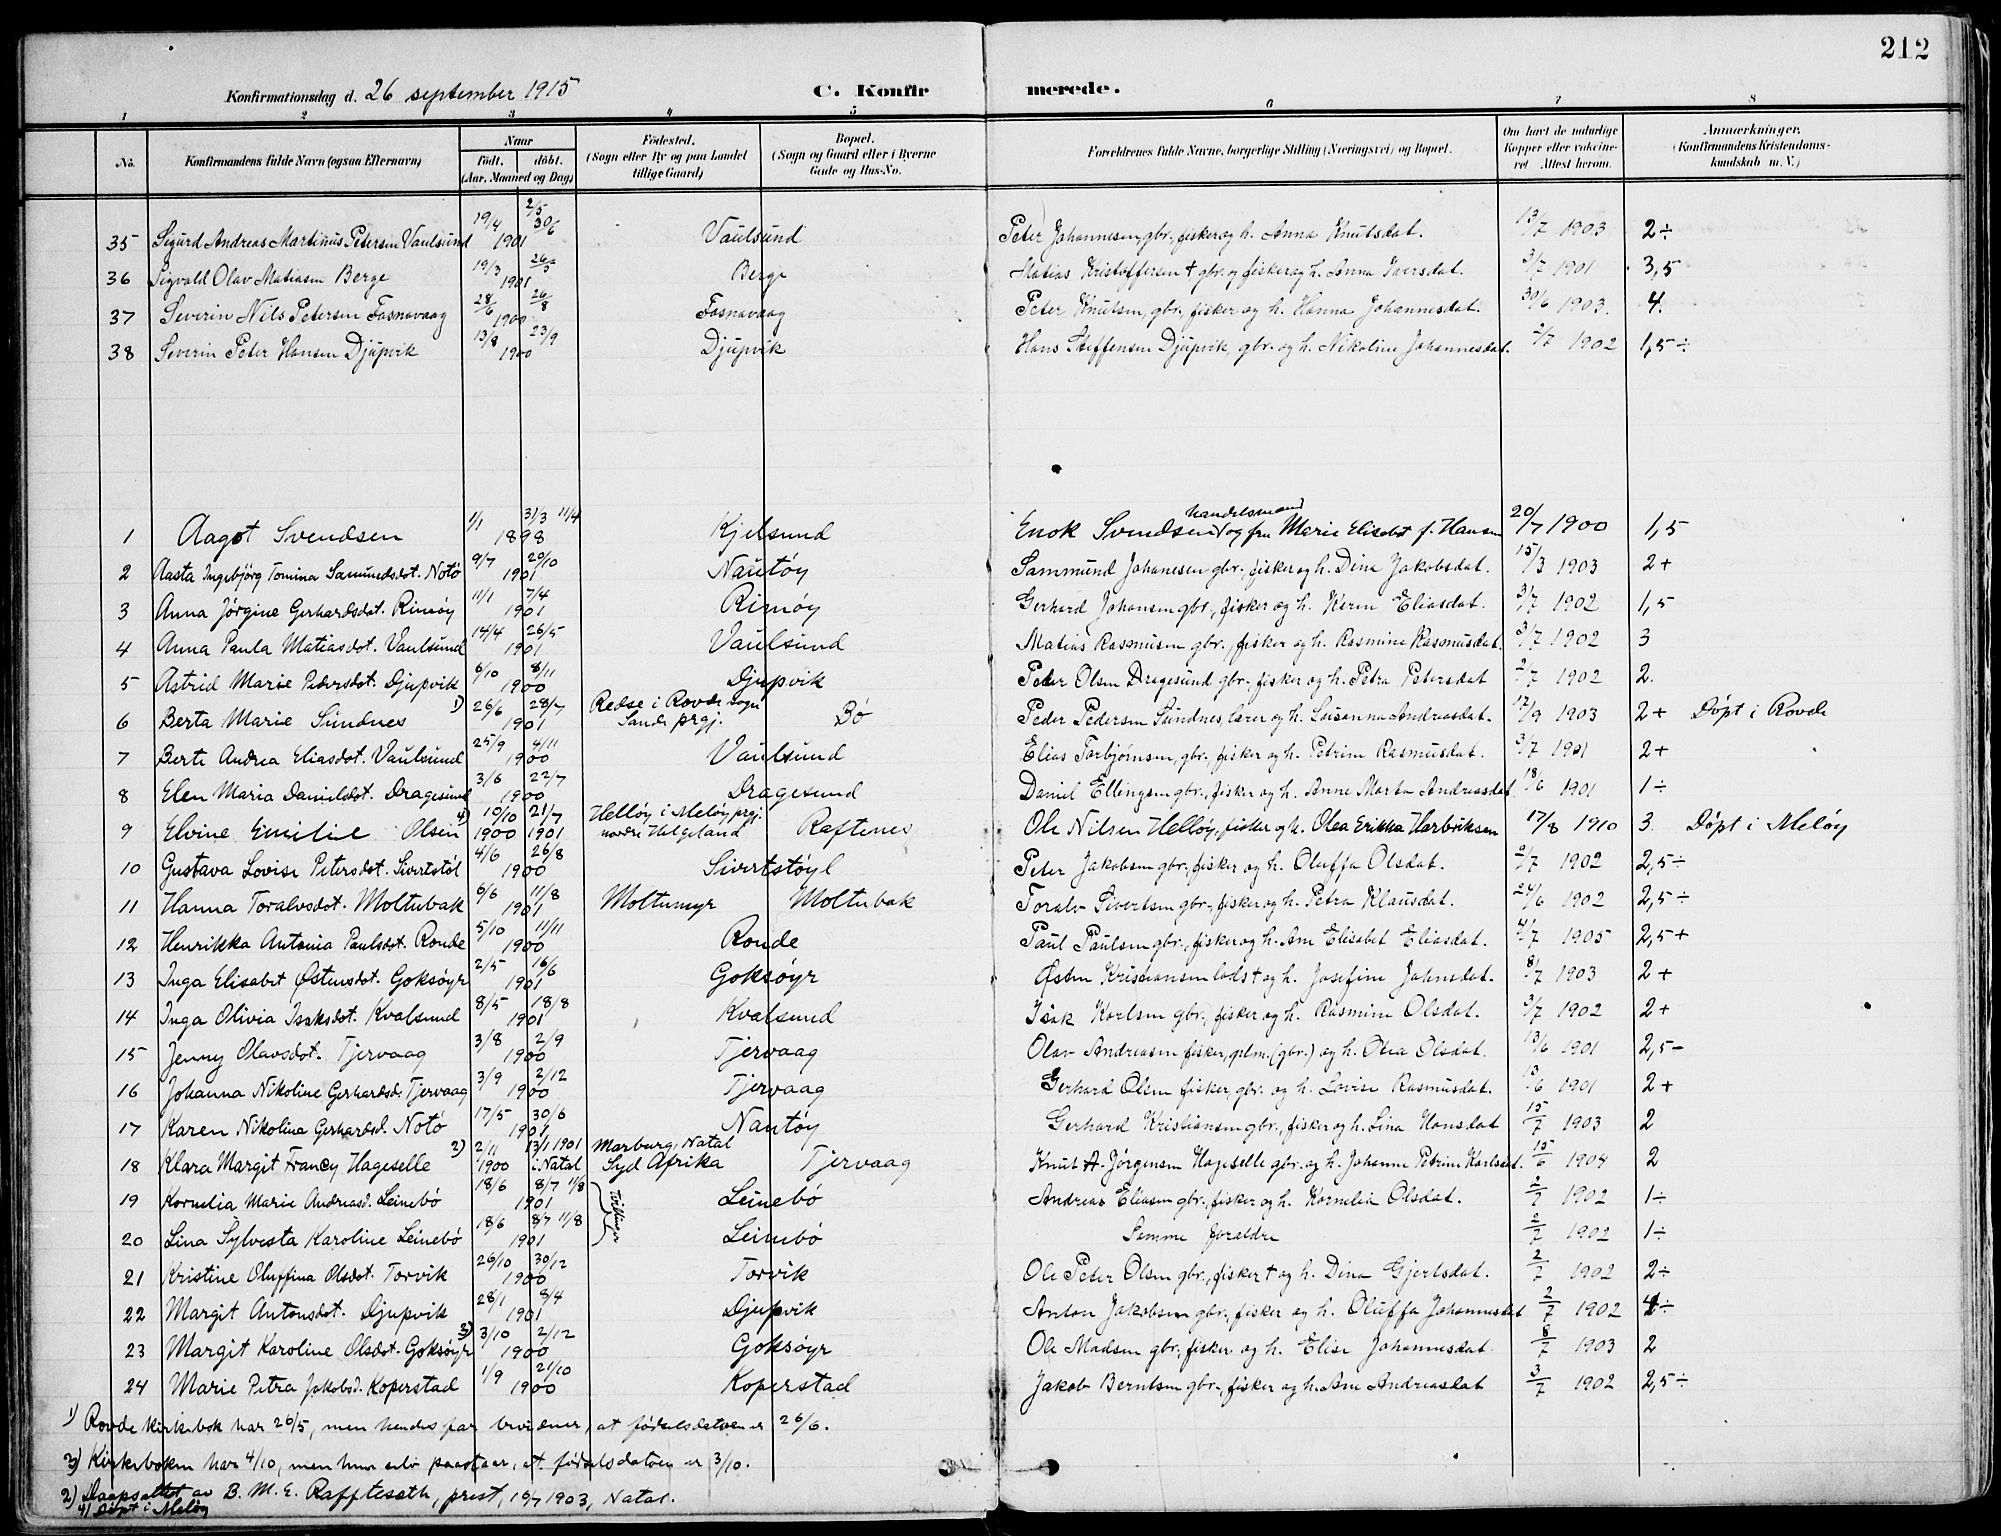 212
Konfirmationsdag d. 26 september 1915 C. Konfirmerede.
1 2 3 4 5 6 7 8
No. Konfirmandens fulde Navn (ogsaa Efternavn) Naar født. døbt. (Aar, Maaned og Dag) Fødested. (Sogn eller By og paa Landet tillige Gaard) Bopæl. (Sogn og Gaard eller i Byerne Gade og Hus-No. Forældrenes fulde Navne, borgerlige Stilling (Næringsvei) og Bopæl. Om havt de naturlige Kopper eller vaccineret Attest herom. Anmærkninger, (Konfirmandens Kristendomskundskab m. V.)
35 Sigurd Andreas Martinus Petersen Vaulsund 19/4 1901 2/5 30/6 Vaulsund Peter Johannesen, gbr., fisker og h. Anna Knutsdat. 13/7 1903 2÷
36 Sigvald Olav Matiasen Berge 19/3 1901 26/5 Berge Matias Kristoffersen † gbr. og fisker og h. Anna Iversdat. 3/7 1901 3,5
37 Severin Nils Petersen Fosnavaag 28/6 1900 26/8 Fosnavaag Peter Knutsen, gbr. fisker og h. Hanna Johannesdat. 30/6 1903. 4.
38 Severin Peter Hansen Djupvik 13/8 1900 23/9 Djupvik Hans Steffensen Djupvik, gbr. og h. Nikoline Johannesdat. 2/7 1902 1,5÷
1 Aagot Svendsen 1/1 1898 31/3 11/4 Kjelsund Enok Svendsen handelsmand og fru Marie Elisabet f. Hansen 20/7 1900 1,5
2 Aasta Ingebjörg Tomina Samundsdot. Notö 9/7 1901 20/10 Nautöy Sammund Johanesen gbr., fisker og h. Dina Jakobsdat. 15/3 1903 2+
3 Anna Jörgine Gerhardsdot. Rimöy 11/1 1901 7/4 Rimöy Gerhard Johansen gbr., fisker og h. Karen Eliasdat. 3/7 1902 1,5
4 Anna Paula Matiasdot. Vaulsund 14/4 1901 26/5 Vaulsund Matias Rasmusen gbr., fisker og h. Rasmine Rasmusdat. 3/7 1902 3
5 Astrid Marie Pedersdot. Djupvik 6/10 1900 8/11 Djupvik Peder Olsen Dragesund gbr., fisker og h. Petra Petersdat 2/7 1902 2.
6 Berta Marie Sundnes 1) 26/6 1901 28/7 Redse i Rovde sogn Sande prgj. Bö Peder Pedersen Sundnes, lærer og h. Lusanna Andreasdat. 17/9 1903 2+ Döpt i Rovde
7 Berte Andrea Eliasdot. Vaulsund 25/9 1900 4/11 Vaulsund Elias Torbjørnsen, gbr., fisker og h. Petrine Rasmusdat. 3/7 1901 2+
8 Elen Maria Danielsdot. Dragesund 3/6 1900 22/7 Dragesund Daniel Ellingsen gbr., fisker og h. Anne Marta Andreasdat 18/6 1901 1÷
9 Elvine Emilie Olsen 4) 10/10 1900 21/7 1901 Hellöy i Melöy prgj. nordre Helgeland Raftenes Ole Nilsen Hellöy, fisker og h. Olea Erikka Harbriksen 17/8 1910 3. Döpt i Melöy
10 Gustava Lovise Petersdot. Sivertstöl 4/6 1900 26/8 Sivertstöyl Peter Jakobsen gbr., fisker og h. Oluffa Olsdat. 2/7 1902 2,5÷
11 Hanna Toralvsdot. Moltubak 6/6 1901 11/8 Moltumyr Moltubak Toralv Sivertsen gbr., fisker og h. Petra Klausdat. 24/6 1902 2,5÷
12 Henrikka Antonia Paulsdot. Ronde 5/10 1900 11/11 Ronde Paul Paulsen gbr., fisker og h. Ane Elisabet Eliasdat. 4/7 1905 2,5+
13 Inga Elisabet Østensdot. Goksöyr 2/5 1901 16/6 Goksöyr Østen Kristiansen lods † og h. Josefine Johnsdat. 8/7 1903 2+
14 Inga Olivia Isaksdot. Kvalsund 8/5 1901 18/8 Kvalsund Isak Karlsen gbr., fisker og h. Rasmine Olsdat. 3/7 1902 2+
15 Jenny Olavsdot. Tjervaag 3/8 1900 2/9 Tjervaag Olav Andreasen fisker, plm. (gbr.) og h. Olea Olsdat. 13/6 1901 2,5-
16 Johanna Nikoline Gerhardsd. Tjervaag 3/9 1900 2/12 Tjervaag Gerhard Olsen fisker, gbr. og h. Lovise Rasmusdat. 13/6 1901 2+
17 Karen Nikolina Gerhardsd. Notö 17/5 1901 30/6 Nautöy Gerhard Kristiansen gbr., fisker og h. Lina Hansdat 15/7 1903 2
18 Klara Margit Francy Hageselle 2) 2/11 1900 13/1 1901 i Natal Marburg, Natal Syd Afrika Tjervaag Knut A. Jörgensen Hageselle gbr. og h. Johanne Petrine Karlsdat. 15/6 1904 2
19 Kornelia Marie Andreasd. Leinebö 18/6 1901 8/7 11/8 Tvillinger Leinebö Andreas Eliasen gbr., fisker og h. Kornelia Olsdat. 2/7 1902 1÷
20 Lina Sylvesta Karoline Leinebö 18/6 1901 8/7 11/8 Leinebö Samme foraldre 2/7 1902 1÷
21 Kristine Oluffina Olsdot. Torvik 26/10 1900 30/12 Torvik Ole Peter Olsen gbr., fisker † og h. Dina Gjertsdat. 2/7 1902 2÷
22 Margit Antonsdot. Djupvik 28/1 1901 8/4 Djupvik Anton Jakobsen gbr., fisker og h. Oluffa Johannesdat 2/7 1902 4÷
23 Margit Karoline Olsdot. Goksöyr 3) 3/10 1900 2/12 Goksöyr Ole Madsen gbr., fisker og h. Elise Johannesdat. 8/7 1903 2
24 Marie Petra Jakobsd. Koperstad 1/9 1900 21/10 Koperstad Jakob Berntsen gbr., fisker og h. Ane Andreasdat 3/7 1902 2,5÷
1) Rovde kirkebok har 26/5, men hendes far bevidner, at fødselsdatoen er 26/6.
3) Kirkeboken har 4/10, men hun selv paastaar, at fødselsdatoen er 3/10.
2) Daapsattest av B. M. E. Raffteseth, prest, 16/7 1903, Natal.
4) Döpt i Melöy